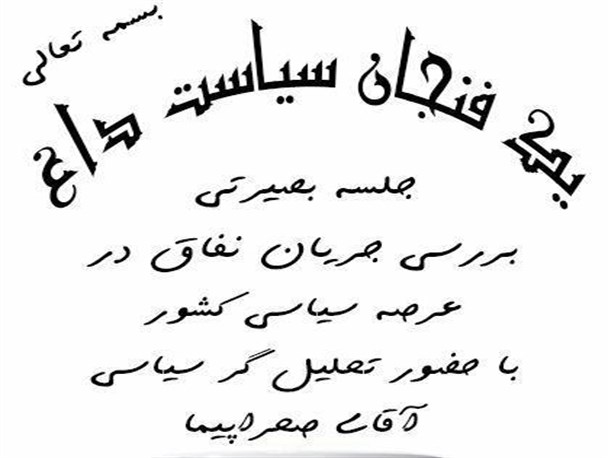 بسمه تعالی
یک فنجان سیاست داغ
جلسه بصیرتی
بررسی جریان نفاق در
عرصه سیاسی کشور
با حضور تحلیل گر سیاسی
آقای صحراپیما